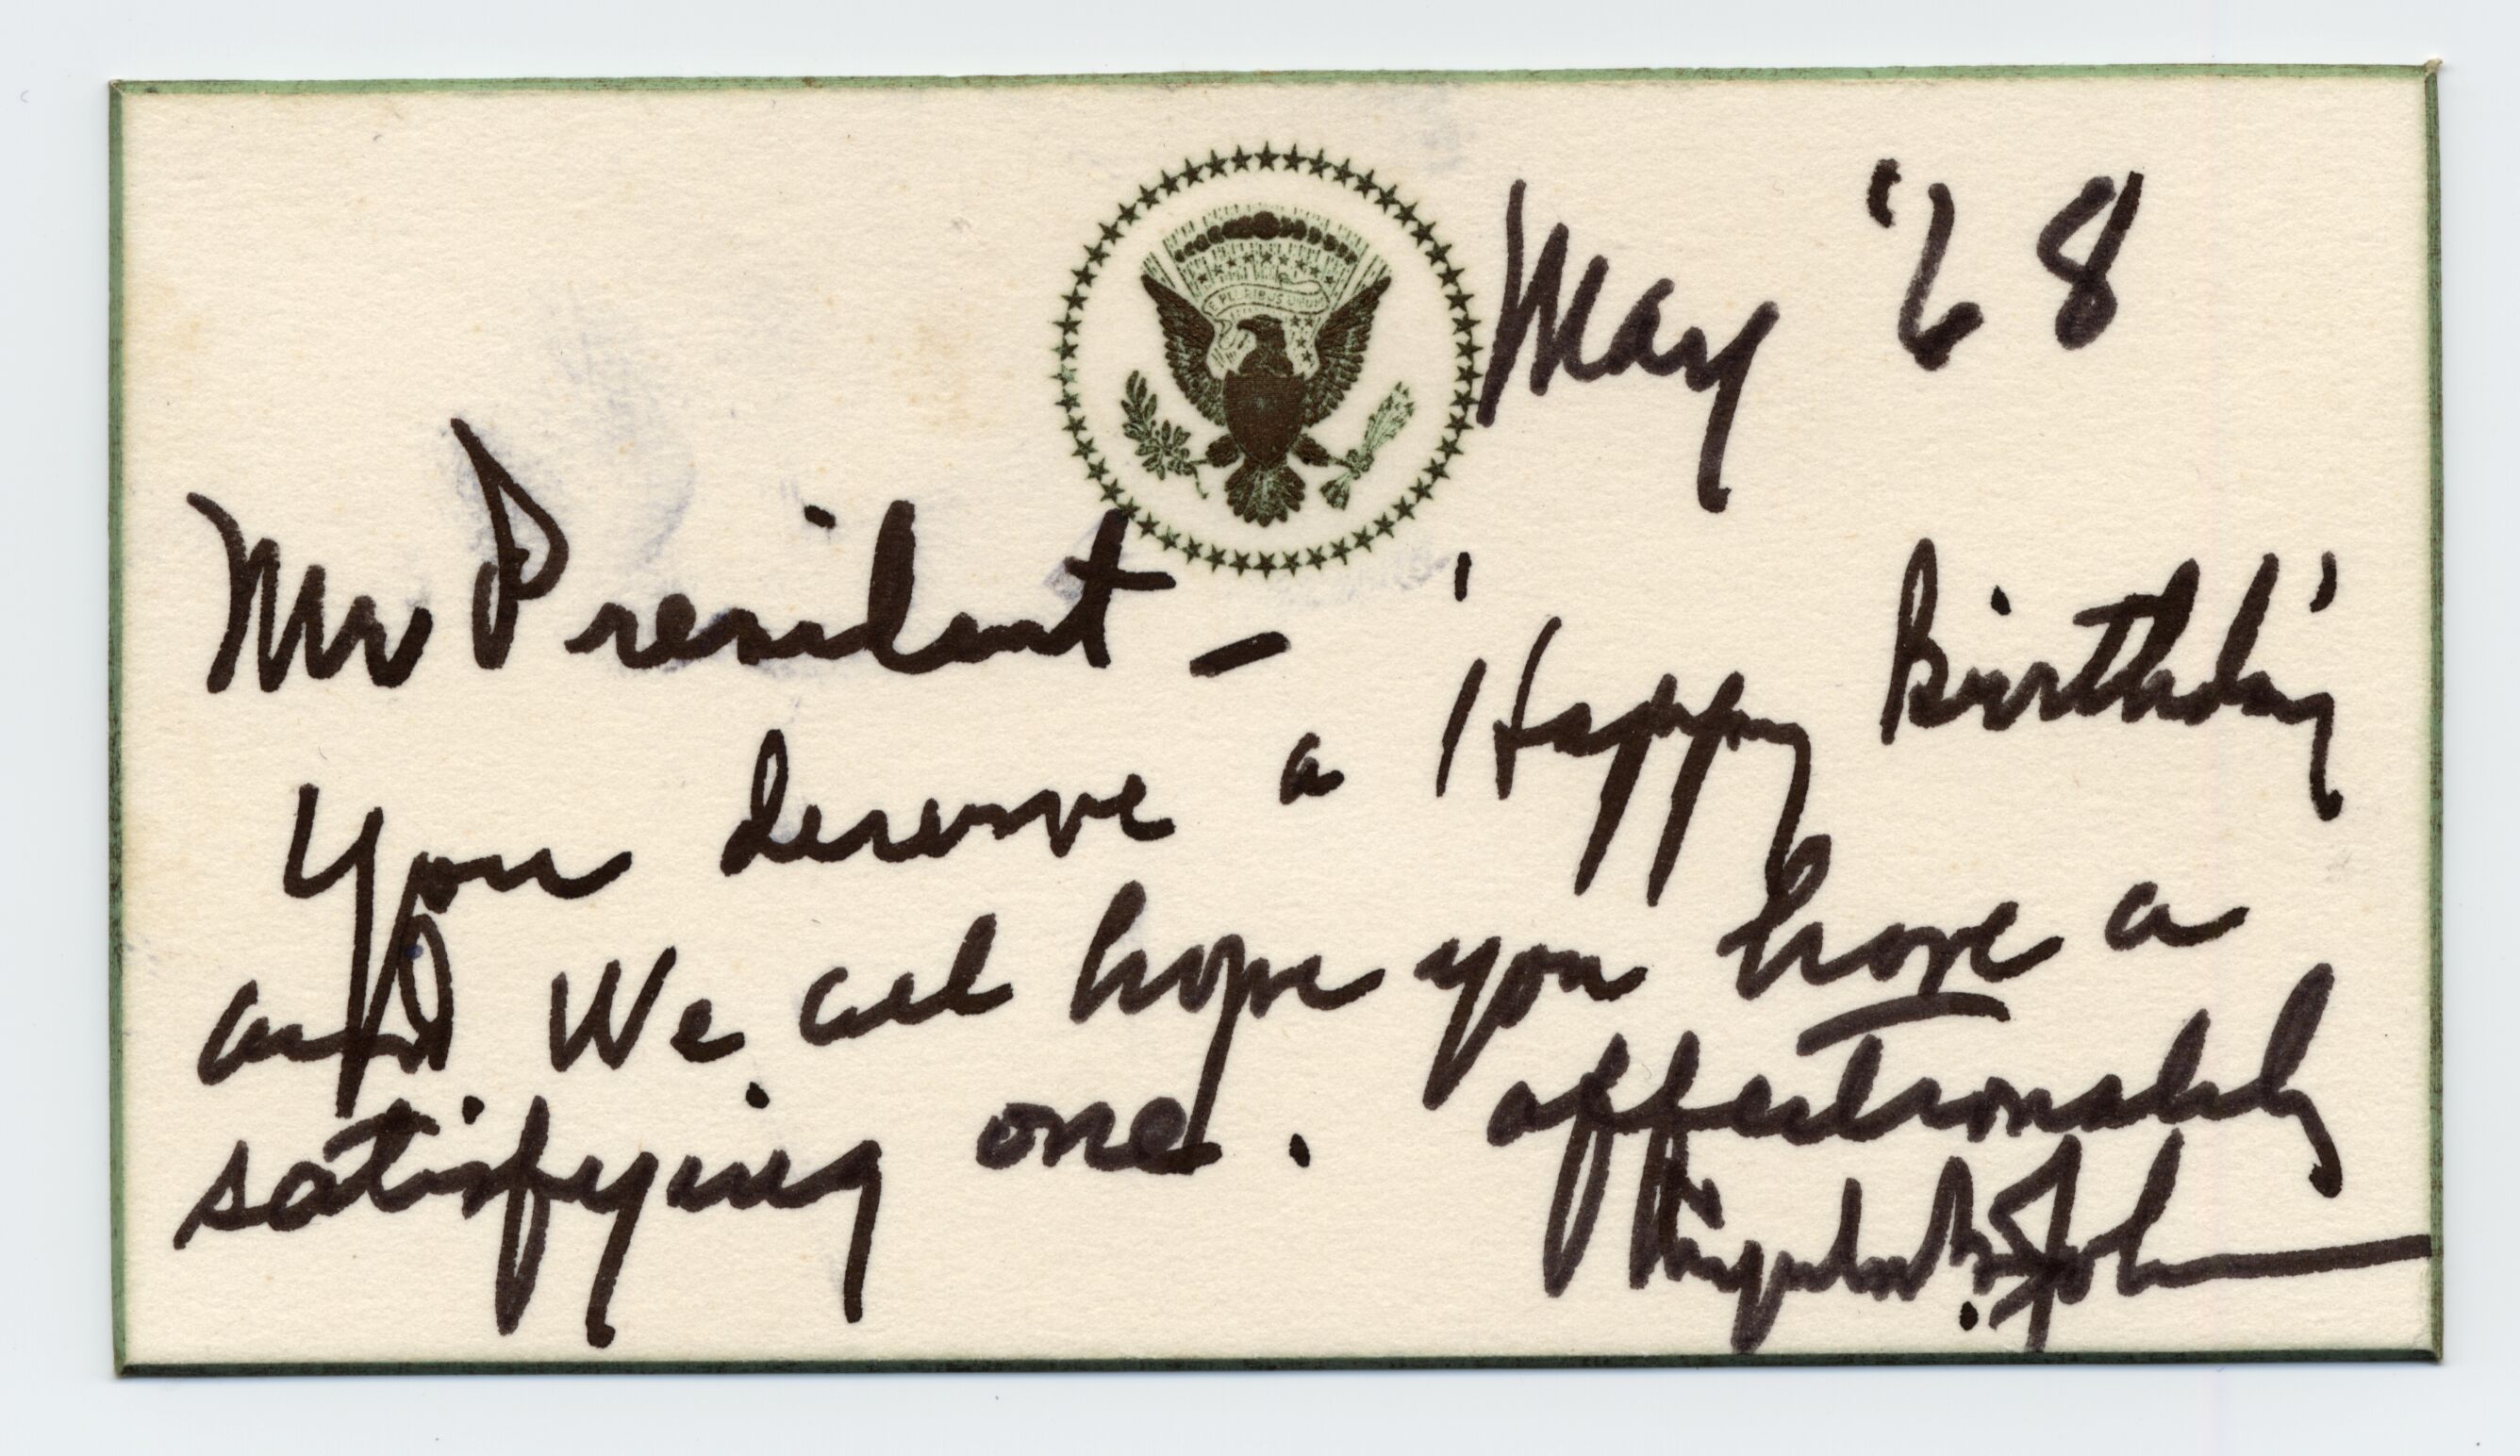 E PLURIBUS UNUM
May '68
Mr President –
You deserve a 'Happy Birthday'
and We all hope you have a
satisfying one. affectionately
Lyndon B. Johnson